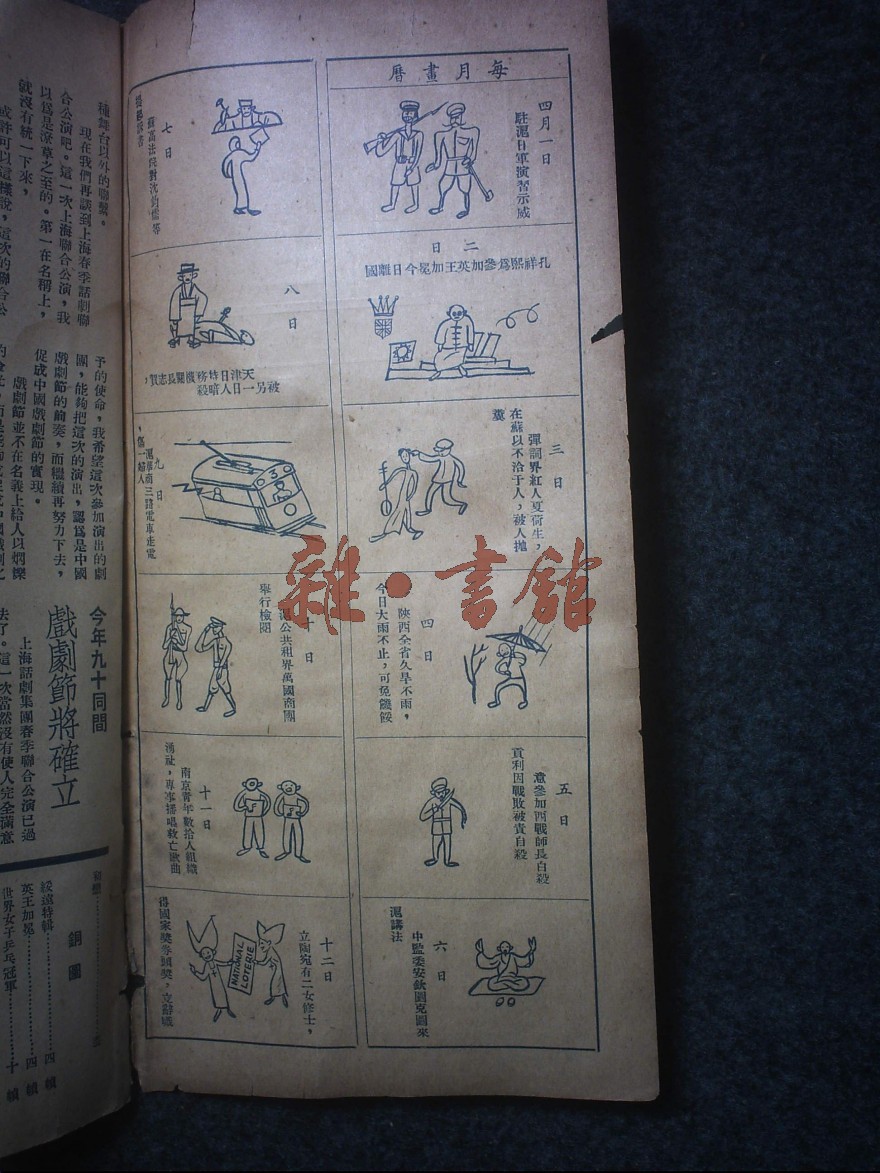 每月畫曆
四月一日
駐滬日軍演習示威
二日
孔祥熙爲參加英王加冕今日離國
三日
彈詞界紅人夏荷生，
在蘇以不洽于人，被人拋
糞
四日
陝西全省久旱不雨，
今日大雨不止，可免饑餒
五日
意參加西戰師長自殺
貢利因戰敗被責自殺
六日
中監委安欽圖克圖來
滬講法
七日
蘇高法院對沈鈞儒等
八日
天津日特務機關長志賀，
被另一日人暗殺
九日
滬華南三路電車走電
，傷一婦人
十日
滬公共租界萬國商團
舉行檢閱
十一日
南京青年數拾人組織
湧社，專事播唱救亡歌曲
十二日
立陶宛有二女修士，
得國家獎券頭獎，立辭職
NATIONAL
LOTERIE
種舞台以外的聯繫。
現在我們再談到上海春季話劇聯
合公演吧。這一次上海聯合公演，我
以爲是潦草之至的。第一在名稱上，
就沒有統一下來，
或許可以這樣說，這次的聯合公
予的使命，我希望這次參加演出的劇
團，能夠把這次的演出，認爲是中國
戲劇節的前奏，而繼續再努力下去，
促成中國戲劇節的實現。
戲劇節並不在名義上給人以炯爍
今年九十同間
戲劇節將確立
上海話劇集團春季聯合公演已過
去了。這一次當然沒有使人完全滿意
銅圖
綏遠特輯……四幀
英王加冕……四幀
世界女子乒乓冠軍……十幀
雜·書館